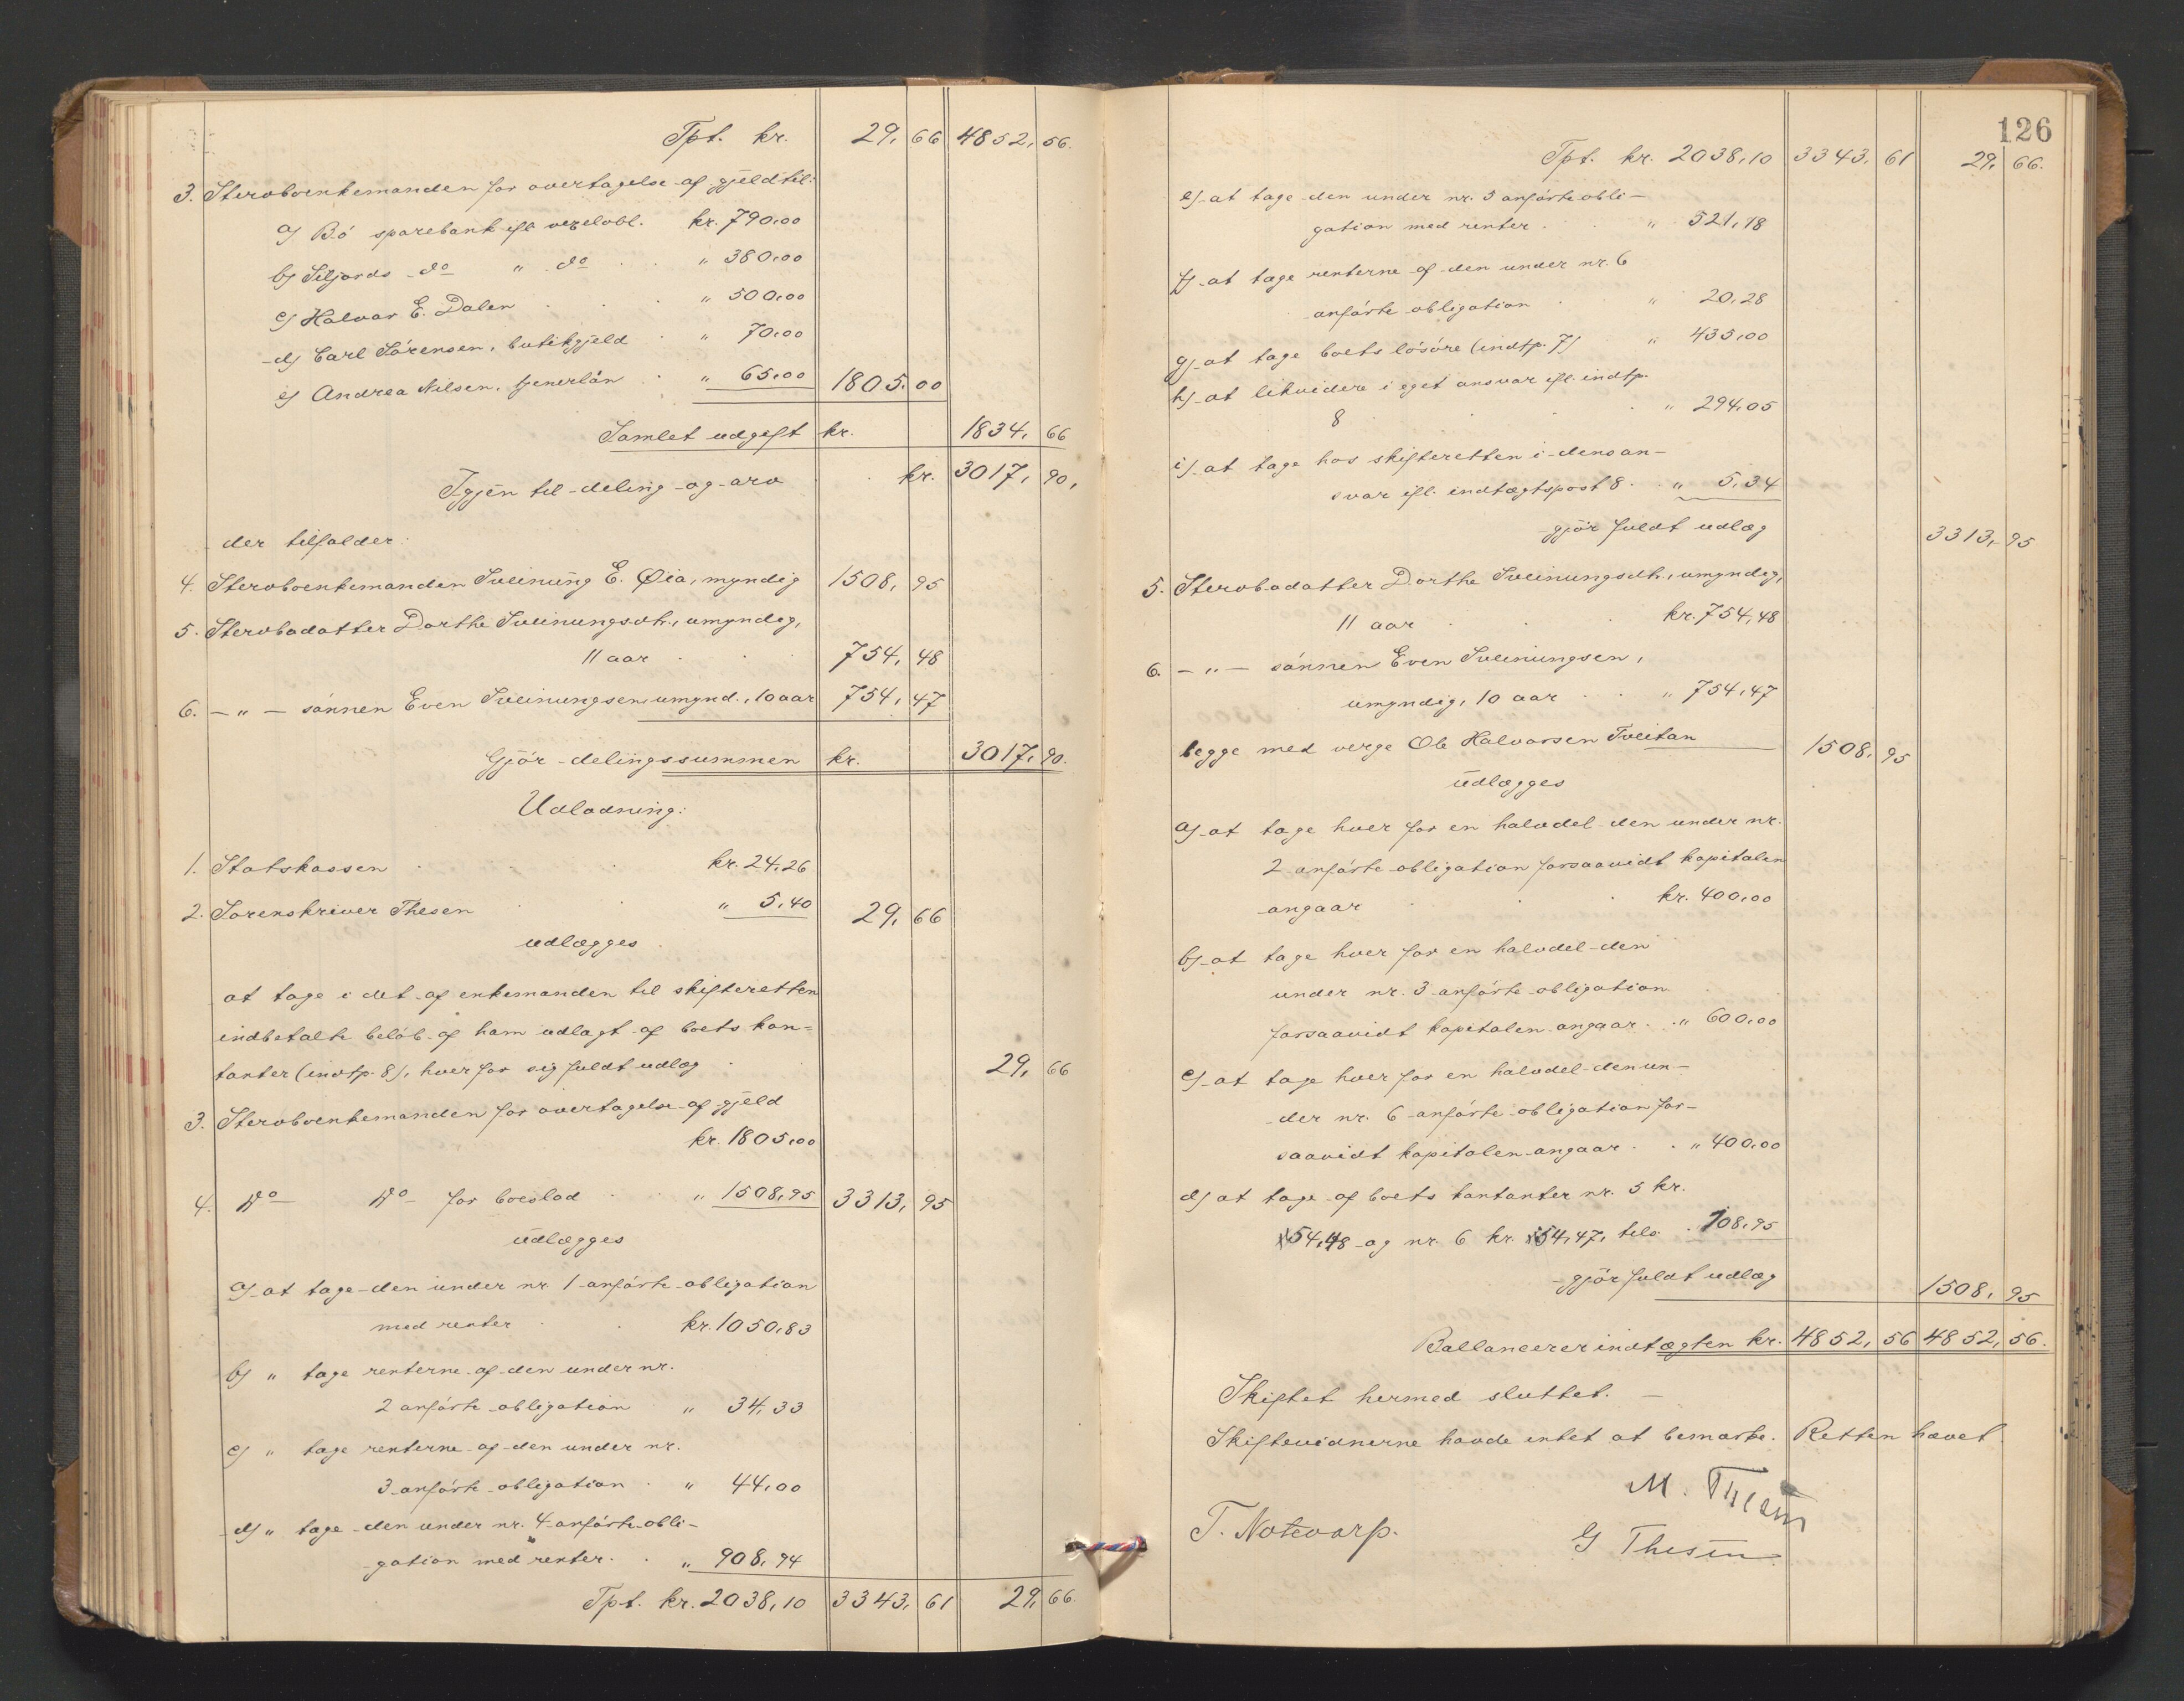 Tpt. kr. 29,66 4852,56.
3. Stervboenkemanden for overtagelse af gjeld til:
a) Bö sparebank ifl. vexelobl. kr. 790,00
b) Seljords do " do . . " 380,00
c) Halvor E. Dalen . . . " 500,00
d) Carl Sörensen, butikgjeld . " 70,00
e) Andrea Nilsen, tjenerlön . " 65,00 1805,00
Samlet udgift kr. 1834,66
Igjen til deling og arv . kr. 3017,90,
der tilfalder:
4. Stervboenkemanden Sveinung E. Øia, myndig 1508,95
5. Stervbodatter Dorthe Sveinungsdtr., umyndig,
11 aar . . . 754,48
6. – " – sönnen Even Sveinungsen, umynd., 10 aar 754,47
Gjör delingssummen kr. 3017,90.
Udlodning:
1. Statskassen . . . kr. 24,26
2. Sorenskriver Thesen . . " 5,40 29,66
udlægges
at tage i det af enkemanden til skifteretten
indbetalte belöb af ham udlagt af boets kon=
tanter (indtp. 8), hver for sig fuldt udlæg . 29,66
3. Stervboenkemanden for overtagelse af gjeld
kr. 1805,00
4. Do Do for boeslod . . " 1508,95 3313,95
udlægges
a) at tage den under nr. 1 anförte obligation
med renter . . kr. 1050,83
b) " tage renterne af den under nr.
2 anförte obligation " 34,33
c) " tage renterne af den under nr.
3 anförte obligation . " 44,00
d) " tage den under nr. 4 anförte obli–
gation med renter . . " 908,94
Tpt. kr. 2038,10 3343,61 29,66.
126
Tpt. kr. 2038,10 3343,61 29,66.
e) at tage den under nr. 5 anförte obli–
gation med renter . . " 521,18
f) at tage renterne af den under nr. 6
anförte obligation . " 20,28
g) at tage boets lösöre (indtp. 7) " 435,00
h) at likvidere i eget ansvar ifl. indtp.
8 . . . . " 294,05
i) at tage hos skifteretten i dens an–
svar ifl. indtægtspost 8 . . " 5,34
gjör fuldt udlæg 3313,95
5. Stervbodatter Dorthe Sveinungsdtr., umyndig,
11 aar . . kr. 754,48
6. – " – sönnen Even Sveinungsen,
umyndig, 10 aar . . " 754,47
begge med verge Ole Halvorsen Tveitan 1508,95
udlægges
a) at tage hver for en halvdel den under nr.
2 anförte obligation forsaavidt kapitalen
angaar . . . kr. 400,00
b) at tage hver for en halvdel den
under nr. 3 anförte obligation
forsaavidt kapitalen angaar . . " 600,00
c) at tage hver for en halvdel den un–
der nr. 6 anförte obligation for–
saavidt kapitalen angaar . . " 400,00
d) at tage af boets kontanter nr. 5 kr.
54,48 og nr. 6 kr. 54,47, tils. . 108,95
gjör fuldt udlæg 1508,95
Ballancerer indtægten kr. 4852,56 4852,56.
Skiftet hermed sluttet. –
Skiftevidnerne havde intet at bemærke. Retten hævet.
M. Thesen
T. Notevarp. G Thesen